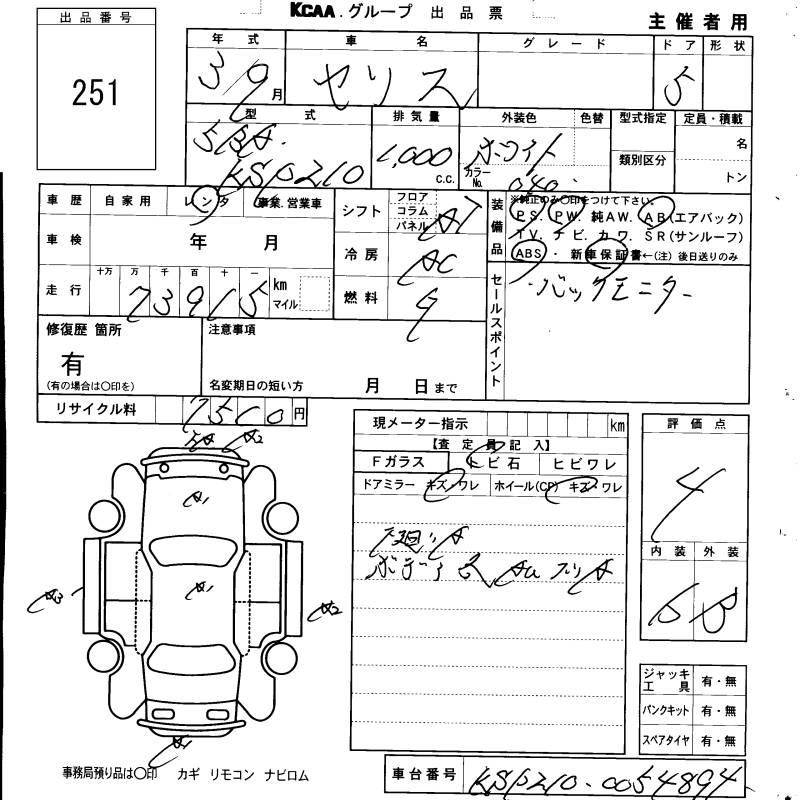 KCAA.グループ 出品票
主催者用
出品番号
251
年式 車名 グレード ドア 形状
3/9月 ヤリス 5
型式 排気量 外装色 色替 型式指定 定員・積載
5BA- KSP210 1,000 c.c. ホワイト カラーNo. 040 類別区分 名 トン
車歴 自家用 レンタ 事業.営業車
車検 年 月
走行 十万 万 千 百 十 一
73915 km マイル
シフト フロア コラム パネル AT
冷房 AC
燃料 G
装備品
※純正のみ〇印をつけて下さい。
PS. PW. 純AW. AB(エアバック)
TV. ナビ. カワ. SR(サンルーフ)
ABS・新車保証書←(注)後日送りのみ
セールスポイント
・バックモニター
修復歴 箇所 注意事項
有
(有の場合は〇印を) 名変期日の短い方 月 日まで
リサイクル料 7510円
現メーター指示 km
【査定員記入】
Fガラス トビ石 ヒビワレ
ドアミラー キズ・ワレ ホイール(CP) キズ・ワレ
下廻りA
評価点
4
内装 外装
B
A2
A1
A1
A3
A2
A1
ジャッキ工具 有・無
パンクキット 有・無
スペアタイヤ 有・無
事務局預り品は〇印 カギ リモコン ナビロム
車台番号 KSP210-0054894